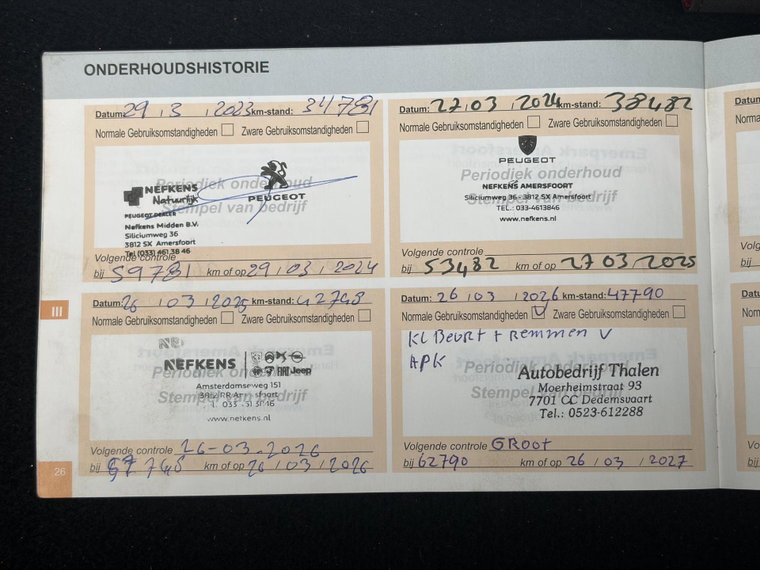 ONDERHOUDSHISTORIE
Datum: 29 / 3 / 2023 km-stand: 34781
Normale Gebruiksomstandigheden Zware Gebruiksomstandigheden
Periodiek onderhoud
Stempel van bedrijf
NEFKENS
Natuurlijk
PEUGEOT
PEUGEOT DEALER
Nefkens Midden B.V.
Siliciumweg 36
3812 SX Amersfoort
Tel (033) 461 38 46
Volgende controle
bij 59781 km of op 29 / 03 / 2024
Datum: 27 / 03 / 2024 km-stand: 38482
Normale Gebruiksomstandigheden Zware Gebruiksomstandigheden
PEUGEOT
Periodiek onderhoud
NEFKENS AMERSFOORT
Siliciumweg 36 - 3812 SX Amersfoort
TEL.: 033-4613846
www.nefkens.nl
Volgende controle
bij 53482 km of op 27 / 03 / 2025
Datum: 26 / 03 / 2025 km-stand: 42748
Normale Gebruiksomstandigheden Zware Gebruiksomstandigheden
NEFKENS
Jeep
Periodiek onderhoud
Amsterdamseweg 151
Stempel van bedrijf
www.nefkens.nl
Volgende controle 26-03-2026
bij 57748 km of op 26 / 03 / 2026
Datum: 26 / 03 / 2026 km-stand: 47790
Normale Gebruiksomstandigheden V Zware Gebruiksomstandigheden
KL Beurt + remmen V
APK
Periodiek onderhoud
Stempel van bedrijf
Autobedrijf Thalen
Moerheimstraat 93
7701 CC Dedemsvaart
Tel.: 0523-612288
Volgende controle GROOT
bij 62790 km of op 26 / 03 / 2027
III
26